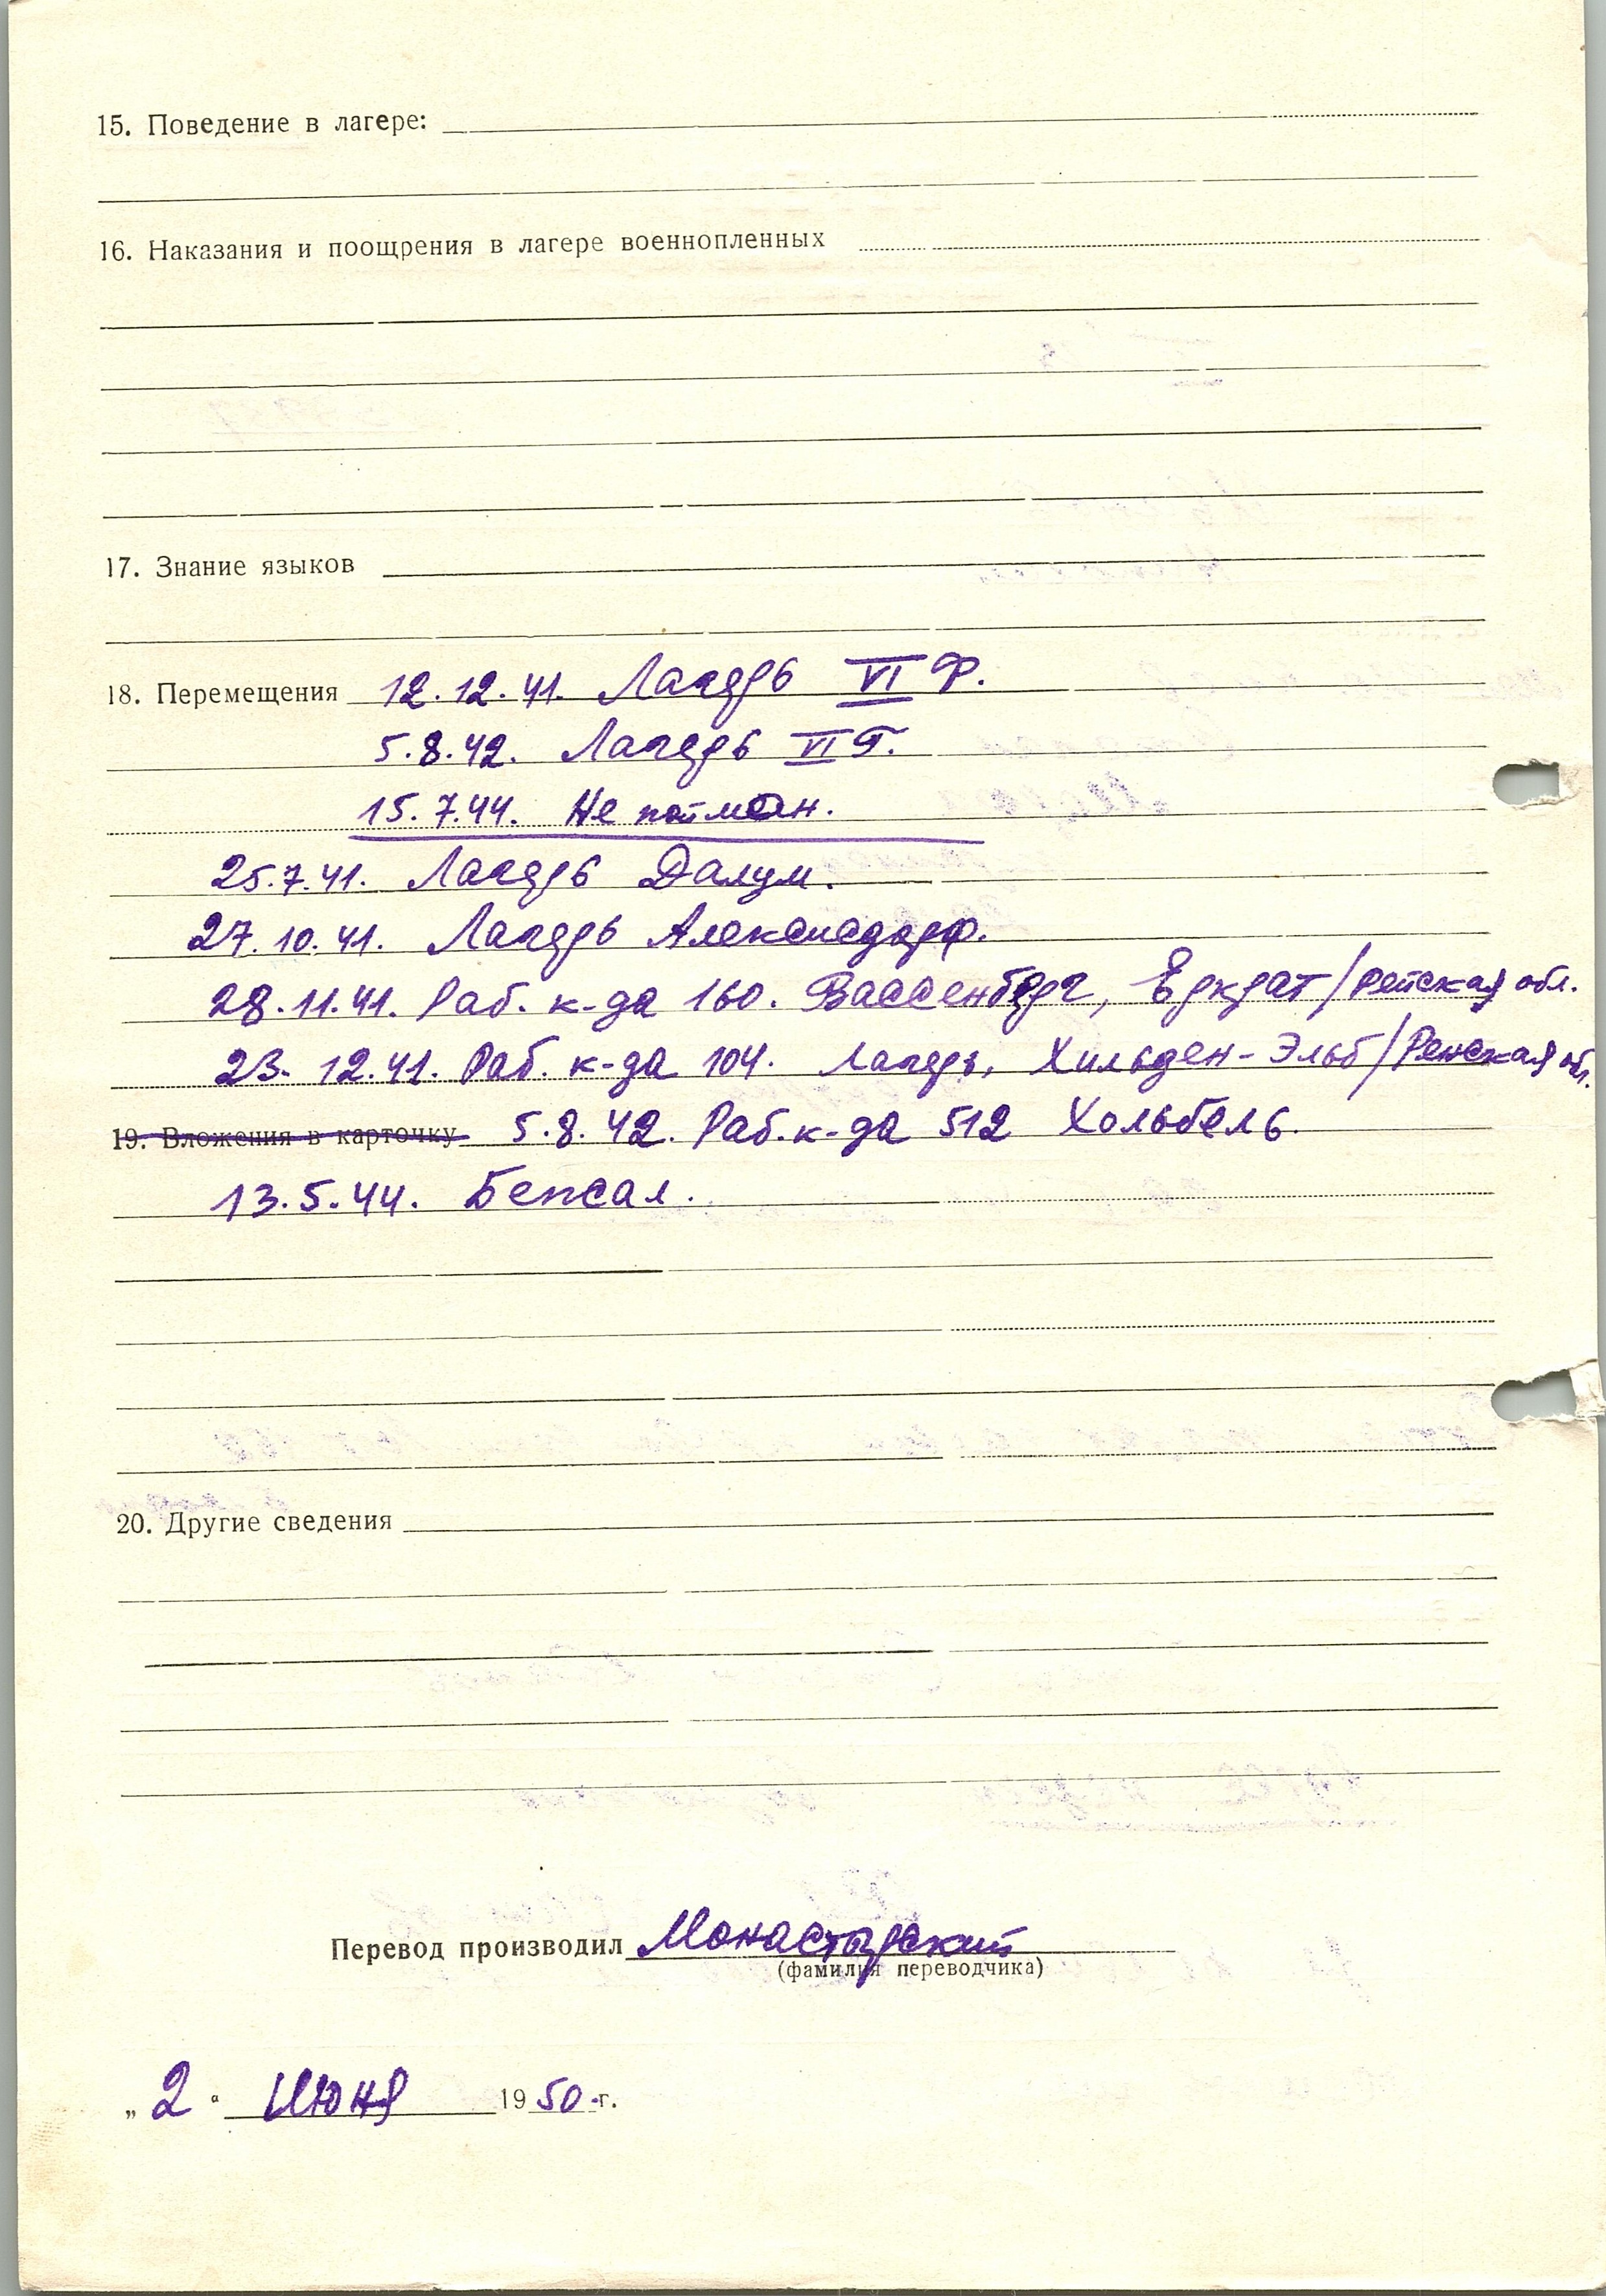 15. Поведение в лагере:
16. Наказания и поощрения в лагере военнопленных
17. Знание языков
18. Перемещения 12.12.41. Лагерь VI Ф.
5.8.42. Лагерь VI Г.
15.7.44. Не пойман.
25.7.41. Лагерь Далум.
27.10.41. Лагерь Алексисдорф.
28.11.41. Раб. к-да 160. Вассенберг, Еркрат/Рейнская обл.
23.12.41. Раб. к-да 104. Лагерь, Хильден-Эльб/Ренская обл.
19. Вложения в карточку 5.8.42. Раб. к-да 512 Хольбель.
13.5.44. Бенсал.
20. Другие сведения
Перевод производил Монастырский
(фамилия переводчика)
„2“ Июня 1950 г.